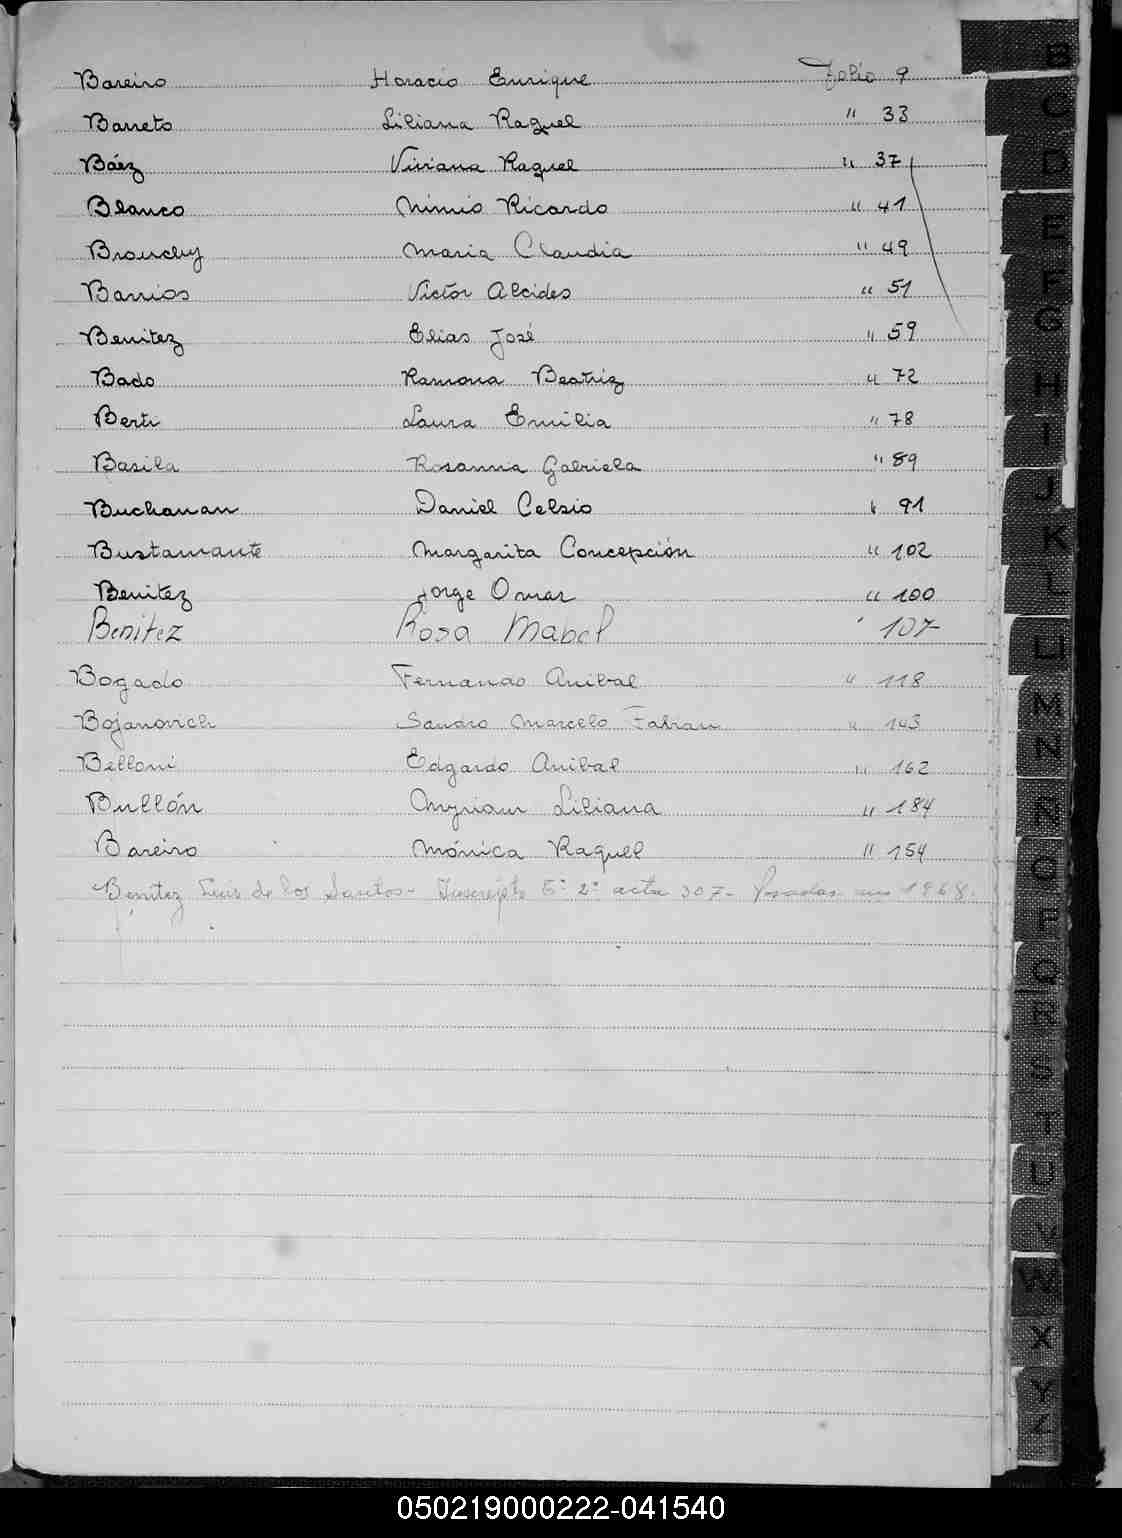 Bareiro Horacio Enrique Folio 9
Barreto Liliana Raquel " 33
Báez Viviana Raquel " 37
Blanco Nimio Ricardo " 41
Brouchy Maria Claudia " 49
Barrios Victor Alcides " 51
Benitez Elias José " 59
Bado Ramona Beatriz " 72
Berti Laura Emilia " 78
Basila Rosanna Gabriela " 89
Buchanan Daniel Celsio " 91
Bustamante Margarita Concepción " 102
Benitez Jorge Omar " 100
Benitez Rosa Mabel " 107
Bogado Fernando Anibal " 118
Bojanovich Sandro Marcelo Fabian " 143
Belloni Edgardo Anibal " 162
Bullón Myriam Liliana " 184
Bareiro Mónica Raquel " 154
Benítez Luis de los Santos - 2º acta 307 - Posadas 1968.
B
C
D
E
F
G
H
I
J
K
L
LL
M
N
Ñ
O
P
Q
R
S
T
U
V
W
X
Y
Z
050219000222-041540